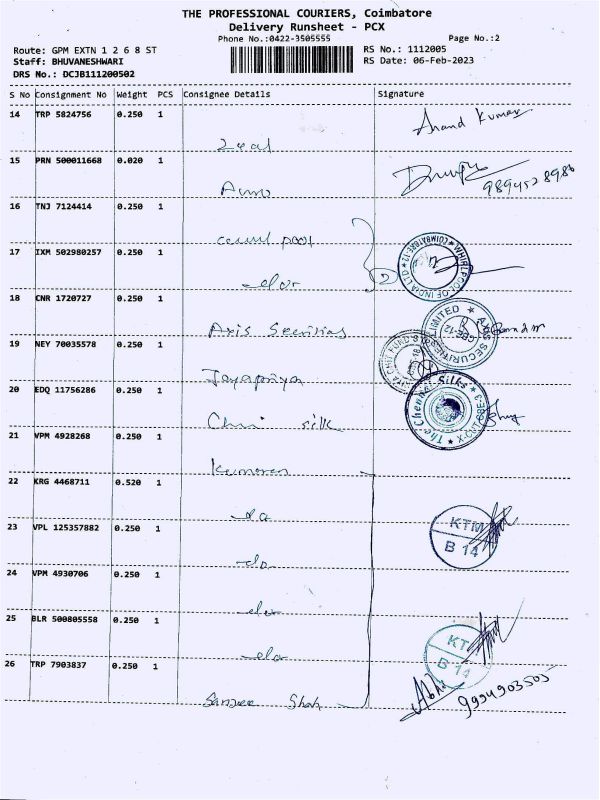 THE PROFESSIONAL COURIERS, Coimbatore
Delivery Runsheet - PCX
Phone No.:0422-3505555 Page No.:2
Route: GPM EXTN 1 2 6 8 ST RS No.: 1112005
Staff: BHUVANESHWARI RS Date: 06-Feb-2023
DRS No.: DCJB111200502
S No Consignment No Weight PCS Consignee Details Signature
14 TRP 5824756 0.250 1
Anand Kumar
15 PRN 500011668 0.020 1
9894528986
16 TNJ 7124414 0.250 1
17 IXM 502980257 0.250 1
WHIRLPOOL OF INDIA LTD COIMBATORE-12
18 CNR 1720727 0.250 1
Axis Securities
LIMITED CBE-12 AXIS SECURITIES
19 NEY 70035578 0.250 1
Jayapriya
20 EDQ 11756286 0.250 1
The Chennai Silks
silk
21 VPM 4928268 0.250 1
Kumaran
22 KRG 4468711 0.520 1
do
KTM
B 14
23 VPL 125357882 0.250 1
do
24 VPM 4930706 0.250 1
do
25 BLR 500805558 0.250 1
do
KT
B 14
26 TRP 7903837 0.250 1
Sanjee Shah
Abhi
9994903505